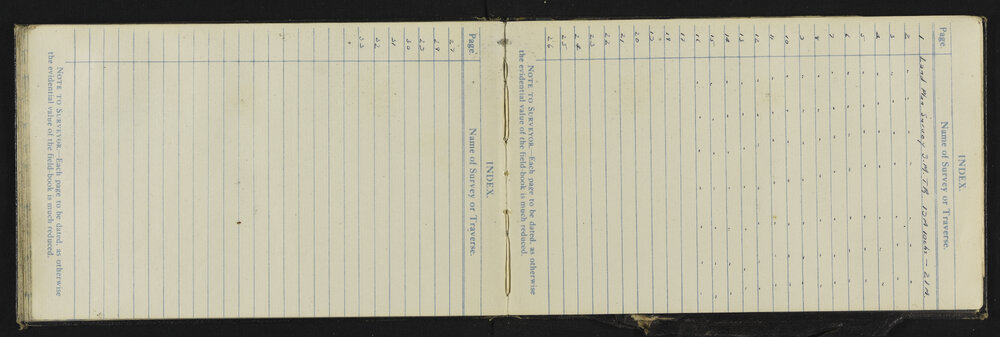 INDEX.
Page. Name of Survey or Traverse.
1 Land Plan Survey
2 " " " "
3 " " " "
4 " " " "
5 " " " "
6 " " " "
7 " " " "
8 " " " "
9 " " " "
10 " " " "
11 " " " "
12 " " " "
13 " " " "
14 " " " "
15 " " " "
16 " " " "
17
18
19
20
21
22
23
24
25
26
NOTE TO SURVEYOR.—Each page to be dated, as otherwise
the evidential value of the field-book is much reduced.
INDEX.
Page. Name of Survey or Traverse.
27
28
29
30
31
32
33
NOTE TO SURVEYOR.—Each page to be dated, as otherwise
the evidential value of the field-book is much reduced.